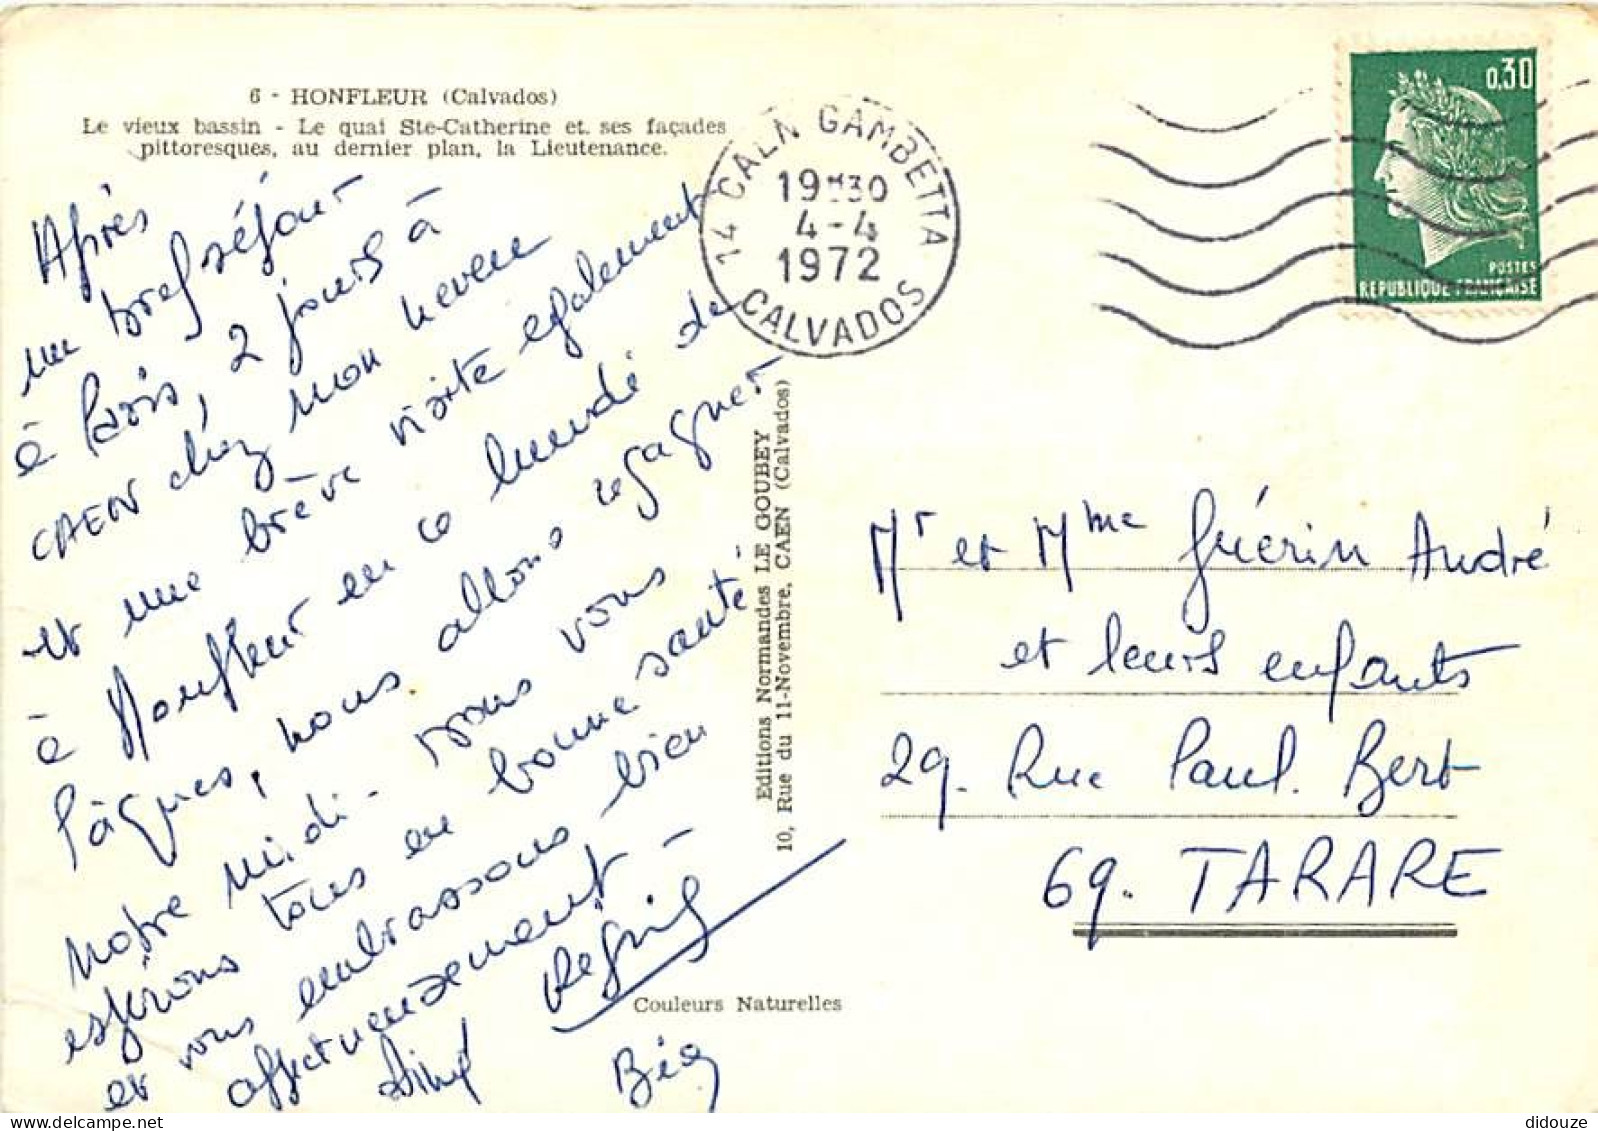 6 - HONFLEUR (Calvados)
Le vieux bassin - Le quai Ste-Catherine et. ses façades
pittoresques, au dernier plan, la Lieutenance.
Après
un bref séjour
à Paris, 2 jours à
CAEN chez mon neveu
et une brève visite également
à Honfleur en ce lundi de
Pâques, nous allons regagner
notre midi - nous vous
espérons tous en bonne santé
et vous embrassons bien
affectueusement -
14 CAEN GAMBETTA
19H30
4-4
1972
CALVADOS
0,30
POSTES
REPUBLIQUE FRANÇAISE
Editions Normandes LE GOUBEY
10, Rue du 11-Novembre, CAEN (Calvados)
Mr et Mme Guérin André
et leurs enfants
29. Rue Paul. Bert
69. TARARE
Couleurs Naturelles
didouze
delcampe.net